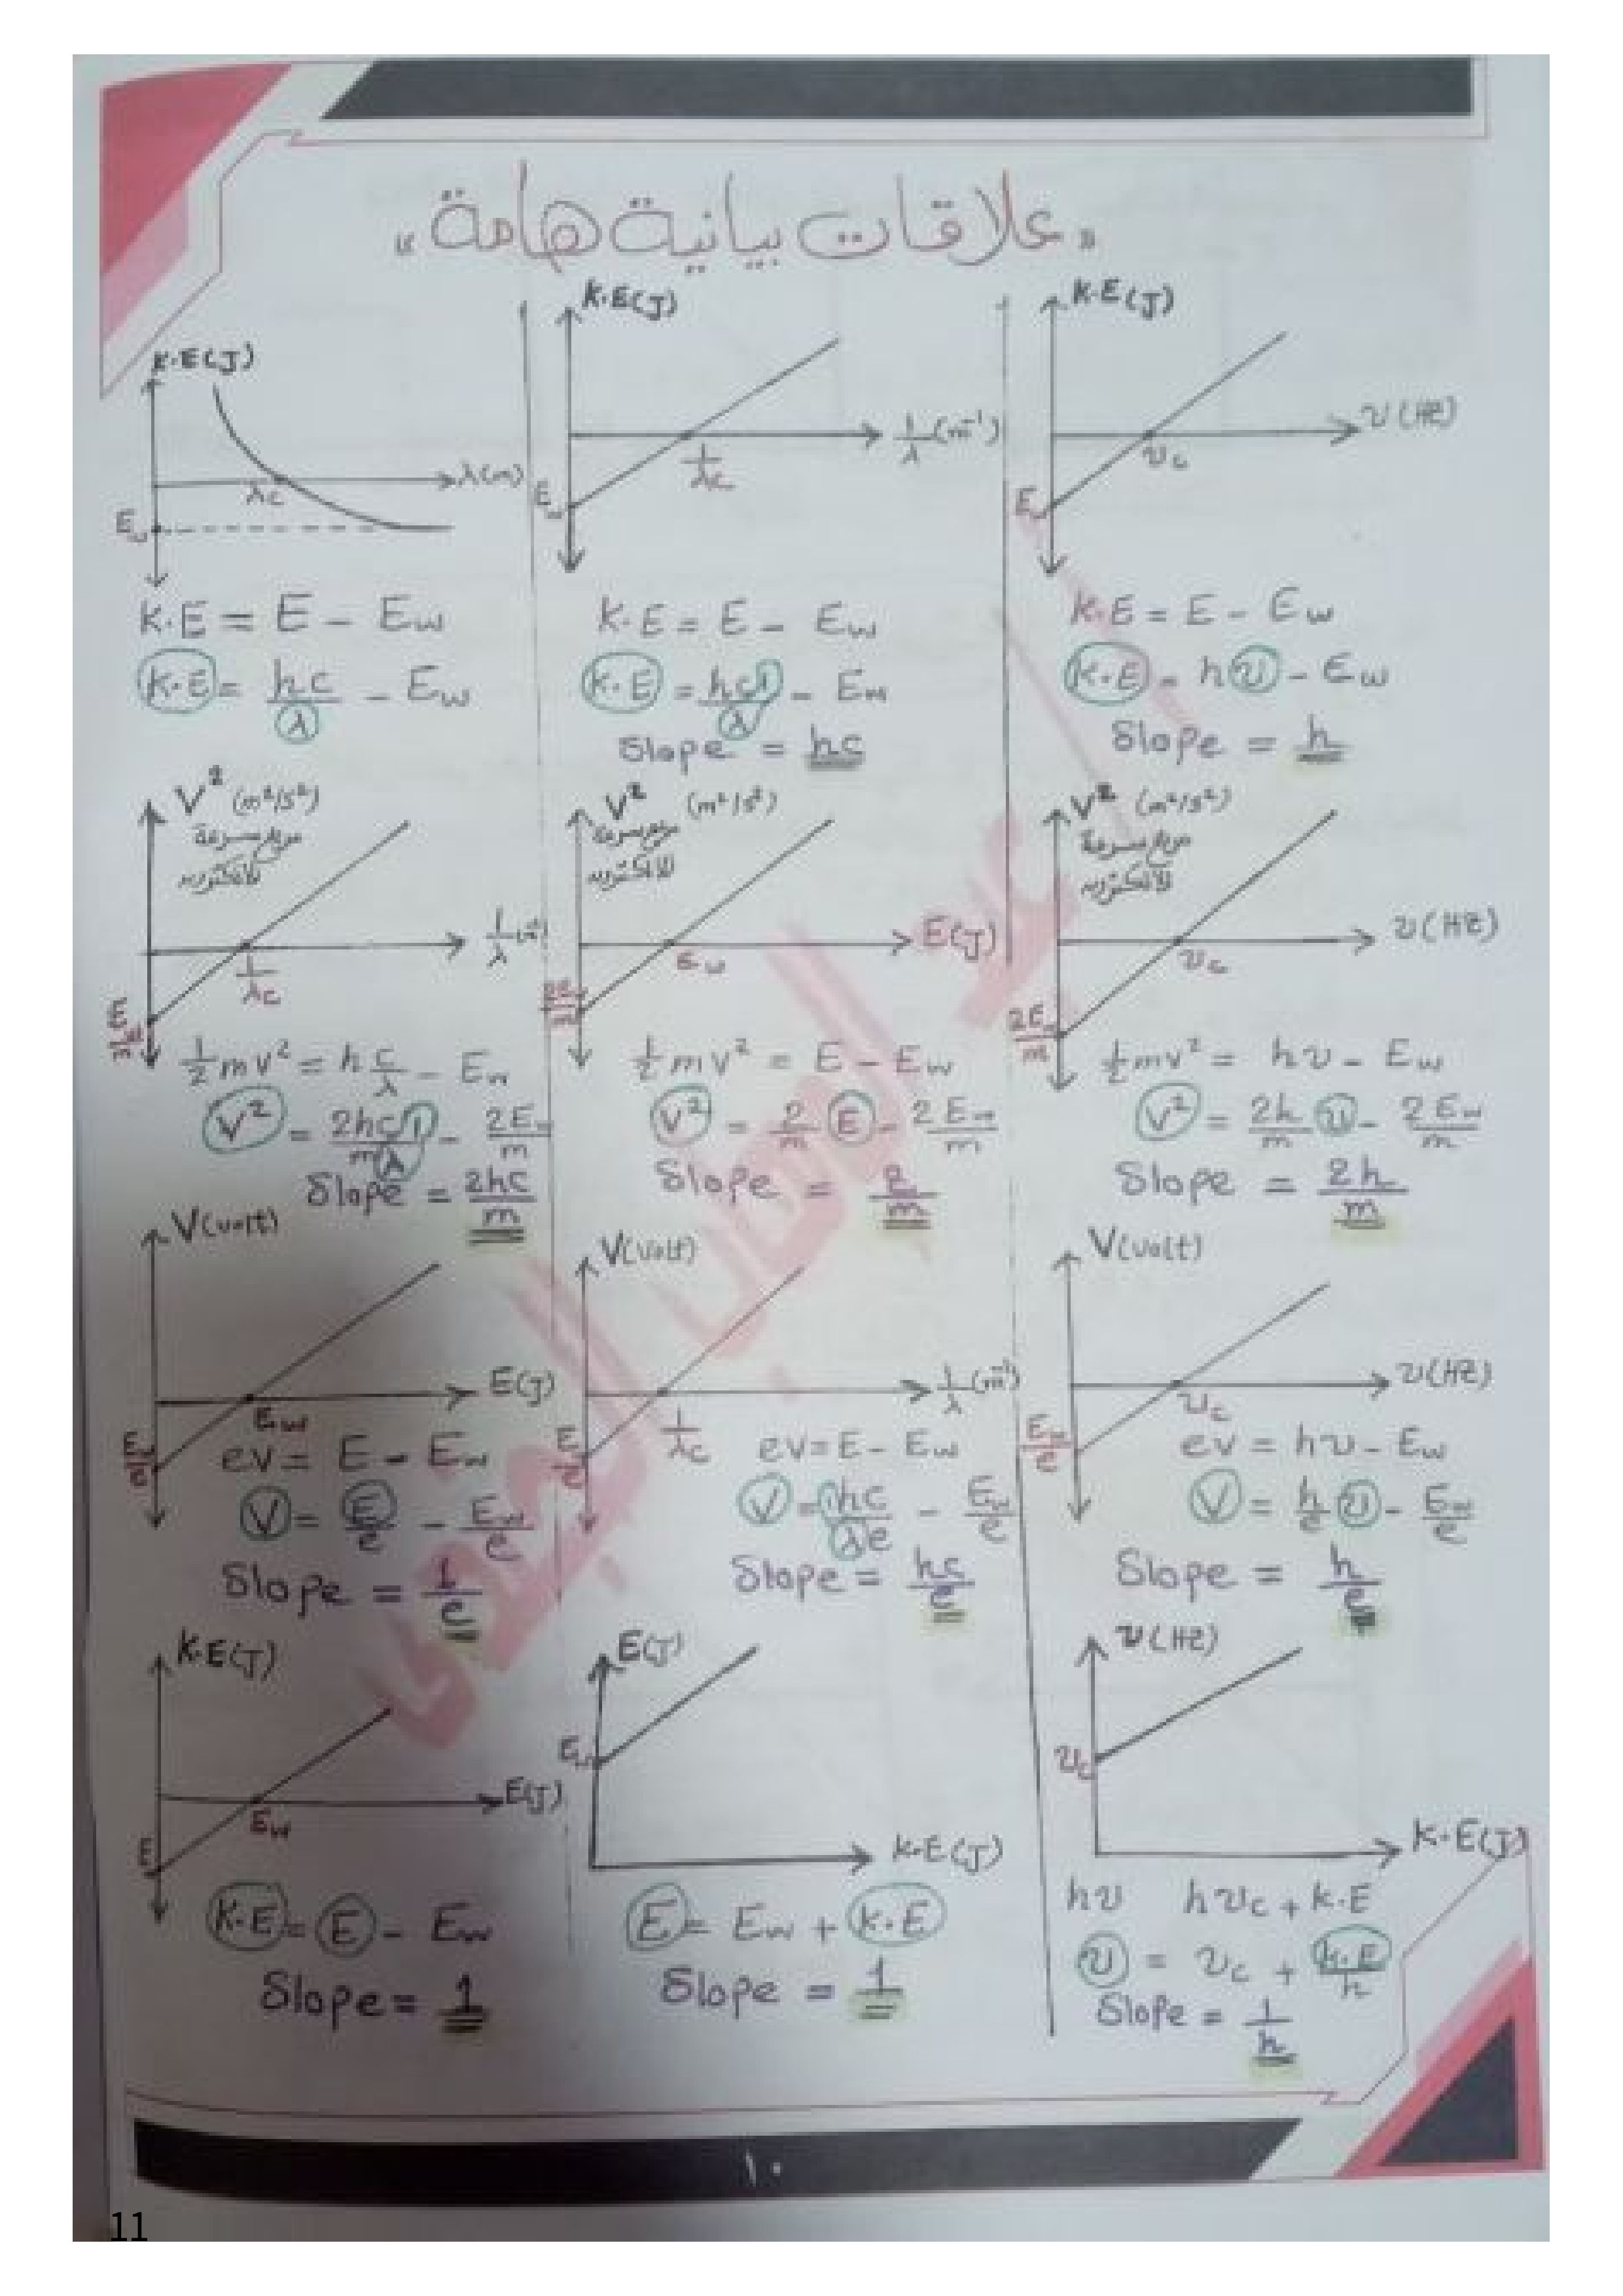 « علاقات بيانية هامة »
K.E(J)
λ(m)
λc
Ew
K.E = E - Ew
K.E = hc/λ - Ew
K.E(J)
1/λ (m⁻¹)
1/λc
Ew
K.E = E - Ew
K.E = hc 1/λ - Ew
Slope = hc
K.E(J)
υ(HZ)
υc
Ew
K.E = E - Ew
K.E = hυ - Ew
Slope = h
V² (m²/s²)
مربع سرعة
الالكترون
1/λ
1/λc
½mv² = h c/λ - Ew
V² = 2hc/m 1/λ - 2Ew/m
Slope = 2hc/m
V² (m²/s²)
مربع سرعة
الالكترون
E(J)
Ew
½mv² = E - Ew
V² = 2/m E - 2Ew/m
Slope = 2/m
V² (m²/s²)
مربع سرعة
الالكترون
υ(HZ)
υc
2Ew/m
½mv² = hυ - Ew
V² = 2h/m υ - 2Ew/m
Slope = 2h/m
V(volt)
E(J)
Ew
Ew/e
eV = E - Ew
V = E/e - Ew/e
Slope = 1/e
V(Volt)
1/λ (m⁻¹)
1/λc
E/e
eV = E - Ew
V = 1hc/λe - Ew/e
Slope = hc/e
V(volt)
υ(HZ)
υc
Ew/e
eV = hυ - Ew
V = h/e υ - Ew/e
Slope = h/e
K.E(J)
E(J)
Ew
E
K.E = E - Ew
Slope = 1
E(J)
Ew
K.E(J)
E = Ew + K.E
Slope = 1
υ(HZ)
υc
K.E(J)
hυ hυc + K.E
υ = υc + K.E/h
Slope = 1/h
١٠
11